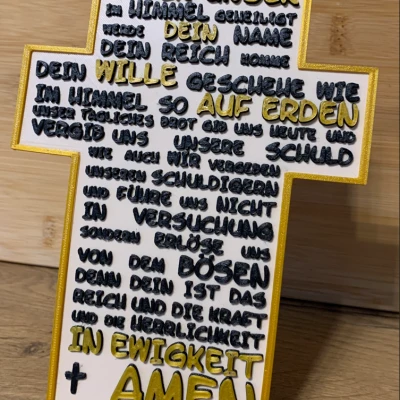 IM HIMMEL GEHEILIGT
WERDE DEIN NAME
DEIN REICH KOMME
DEIN WILLE GESCHEHE WIE
IM HIMMEL SO AUF ERDEN
UNSER TÄGLICHES BROT GIB UNS HEUTE UND
VERGIB UNS UNSERE SCHULD
WIE AUCH WIR VERGEBEN
UNSEREN SCHULDIGERN
UND FÜHRE UNS NICHT
IN VERSUCHUNG
SONDERN ERLÖSE UNS
VON DEM BÖSEN
DENN DEIN IST DAS
REICH UND DIE KRAFT
UND DIE HERRLICHKEIT
IN EWIGKEIT
AMEN